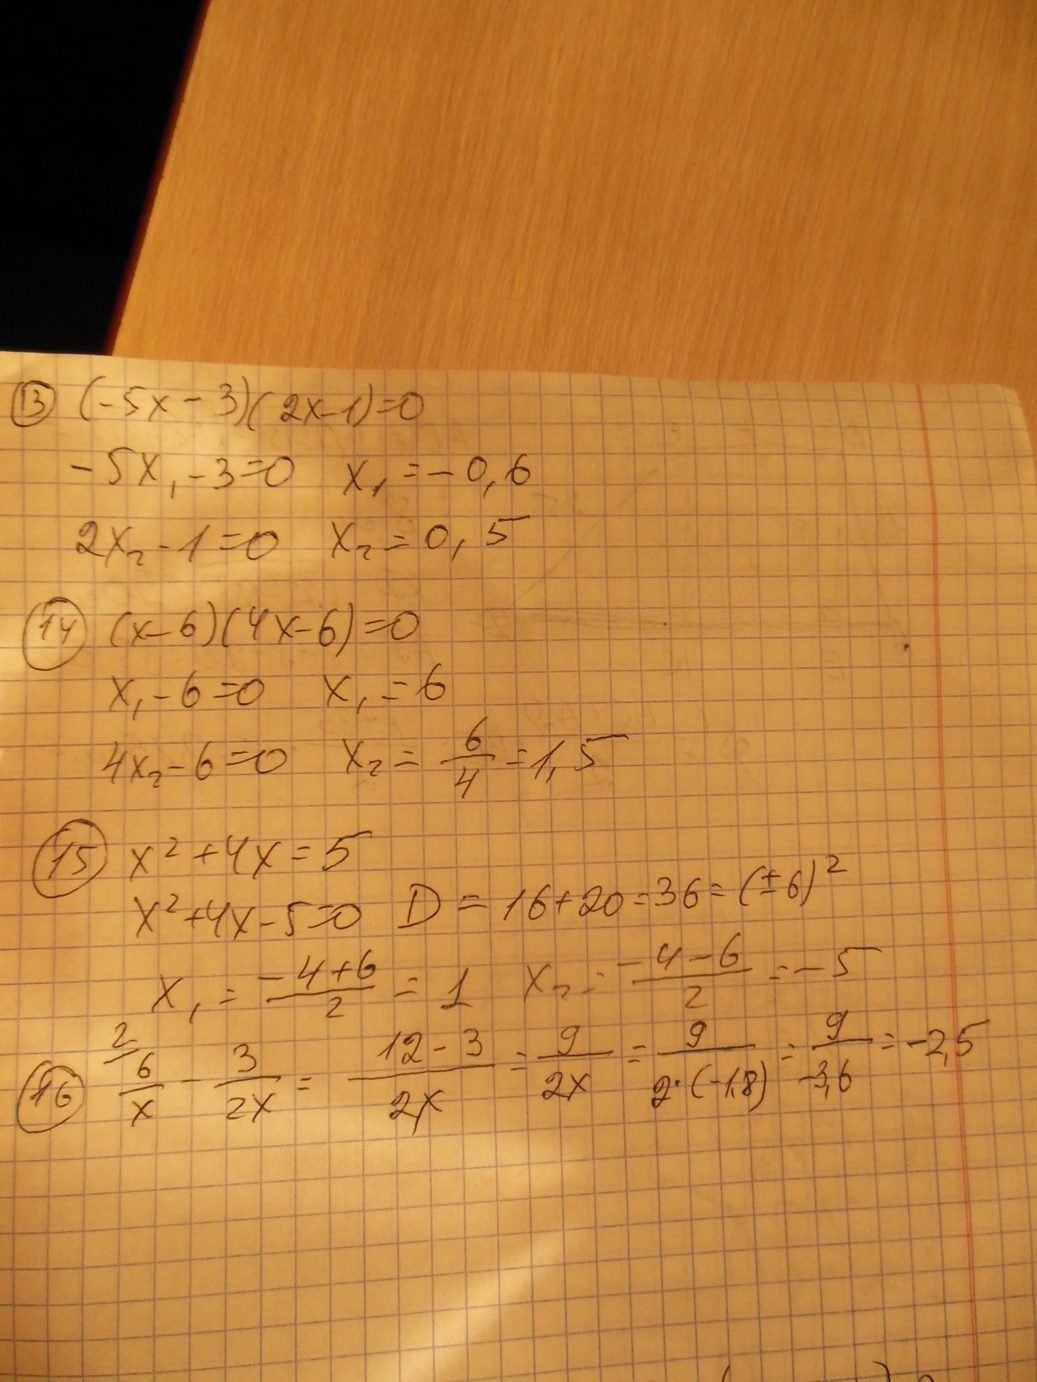 13 (-5x-3)(2x-1)=0
-5x₁-3=0 x₁=-0,6
2x₂-1=0 x₂=0,5
14 (x-6)(4x-6)=0
x₁-6=0 x₁=6
4x₂-6=0 x₂=6/4=1,5
15 x²+4x=5
x²+4x-5=0 D=16+20=36=(±6)²
x₁=(-4+6)/2=1 x₂=(-4-6)/2=-5
16 ²⁄6/x - 3/2x = (12-3)/2x = 9/2x = 9/(2·(-1,8)) = 9/-3,6 = -2,5